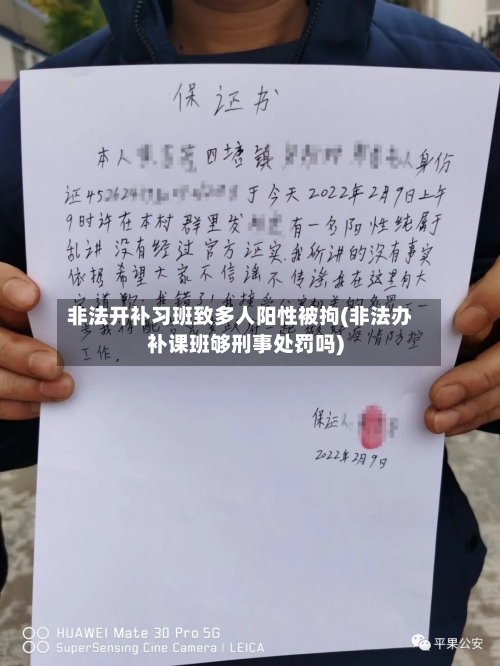 保证书
本人 四塘镇 人身份
证 于今天2022年2月9日上午
9时许在本村群里发 有一名阳性纯属
乱讲没有经过官方证实,我所讲的没有事实
依据希望大家不信谣不传谣我在这里向大
非法开补习班致多人阳性被拘(非法办
补课班够刑事处罚吗)
疫情防控
工作。
保证人
2022年2月9日
HUAWEI Mate 30 Pro 5G
SuperSensing Cine Camera | LEICA
平果公安